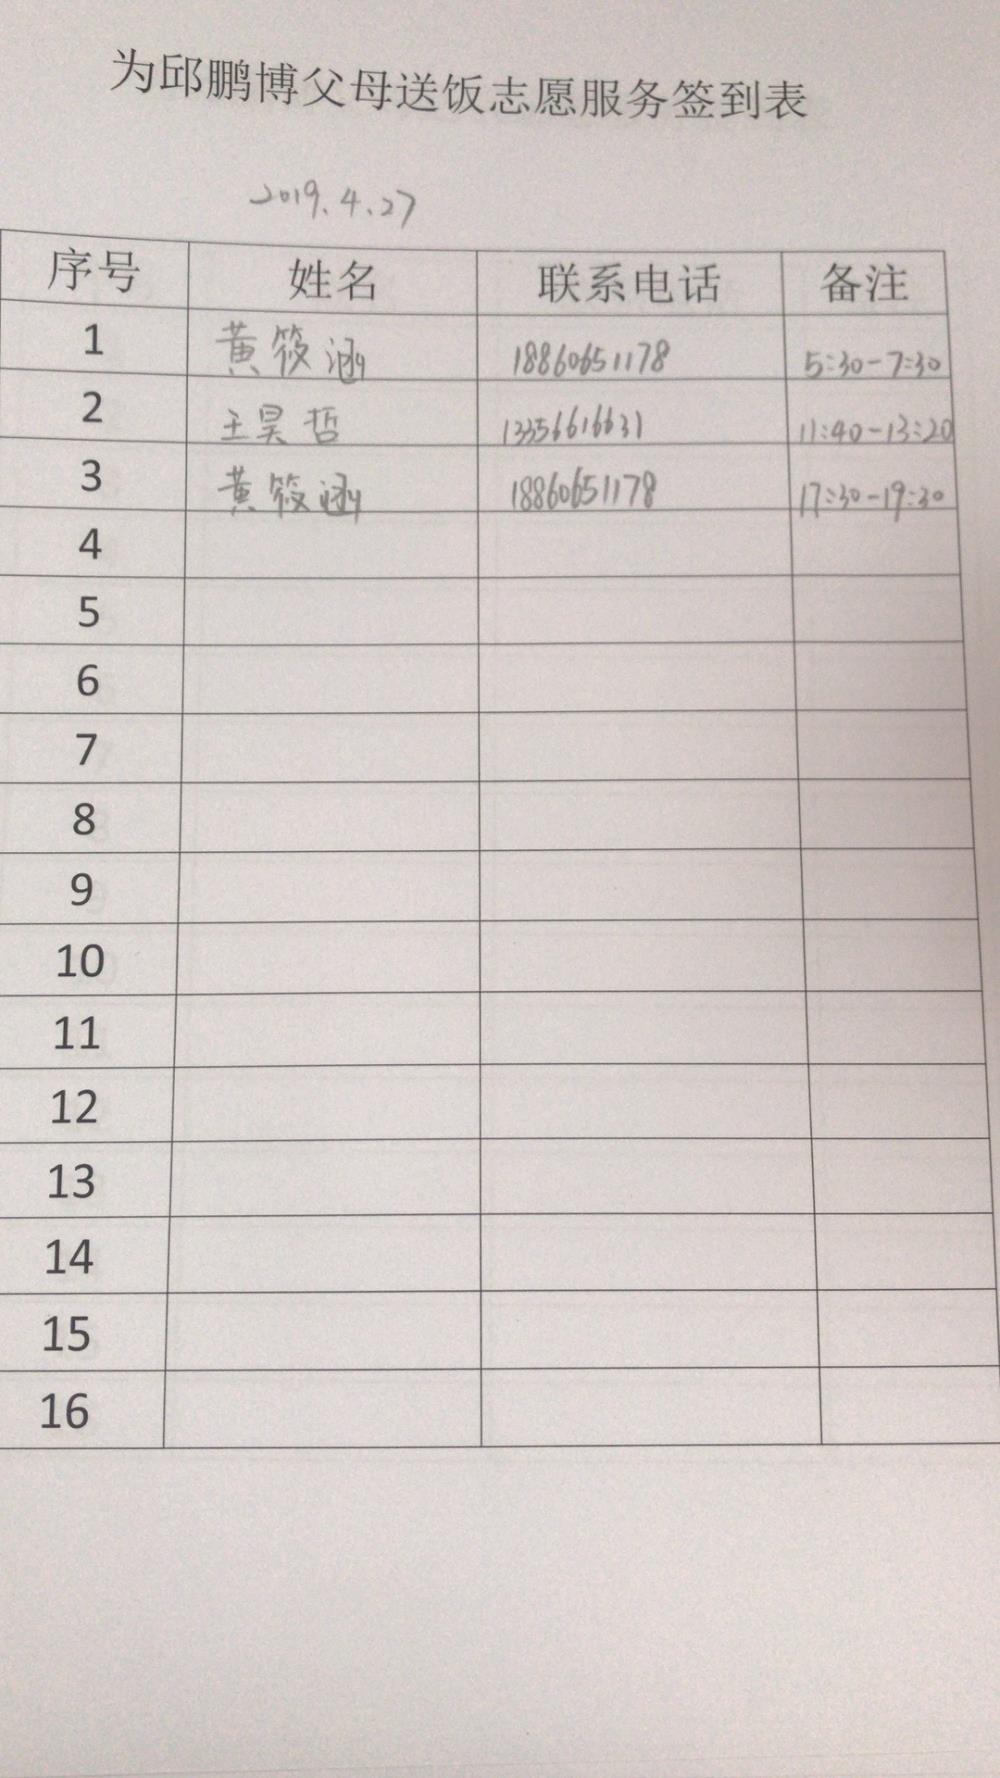 为邱鹏博父母送饭志愿服务签到表
2019.4.27
序号 姓名 联系电话 备注
1 黄筱涵 18860651178 5:30-7:30
2 王昊哲 13356616631 11:40-13:20
3 黄筱涵 18860651178 17:30-19:30
4
5
6
7
8
9
10
11
12
13
14
15
16